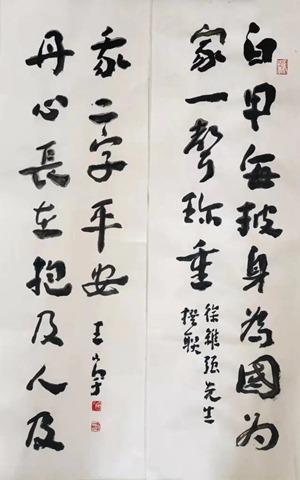 白甲每披身為國為
家一聲珍重
徐維强先生
撰联
丹心長在抱及人及
我二字平安
王